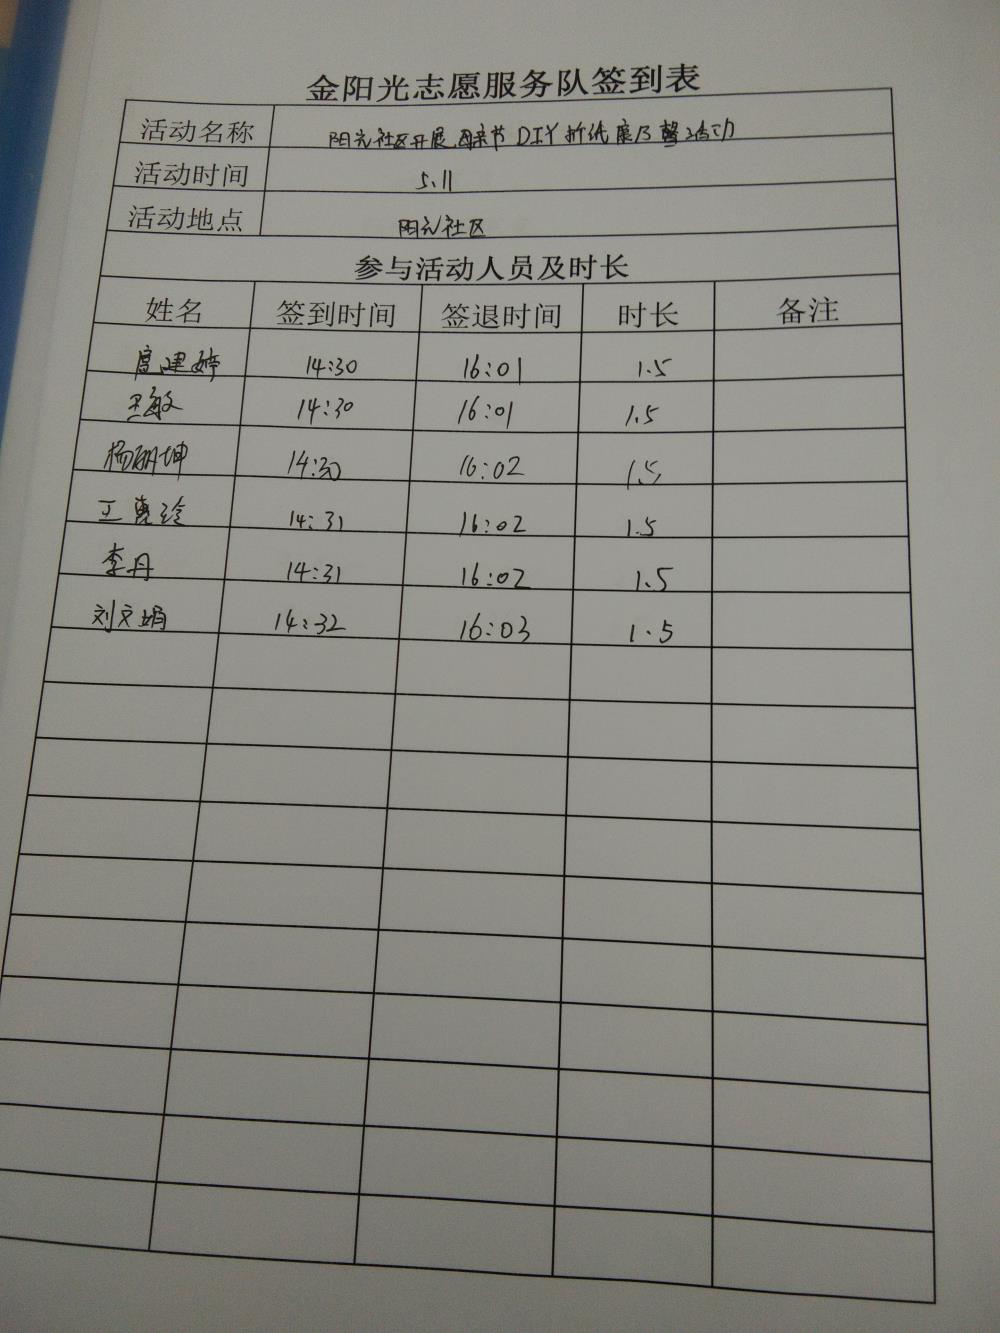 金阳光志愿服务队签到表
活动名称 阳元社区开展母亲节DIY折纸康乃馨活动
活动时间 5.11
活动地点 阳元社区
参与活动人员及时长
姓名 签到时间 签退时间 时长 备注
建婷 14:30 16:01 1.5
王敏 14:30 16:01 1.5
杨丽坤 14:30 16:02 1.5
王惠玲 14:31 16:02 1.5
李丹 14:31 16:02 1.5
刘文娟 14:32 16:03 1.5